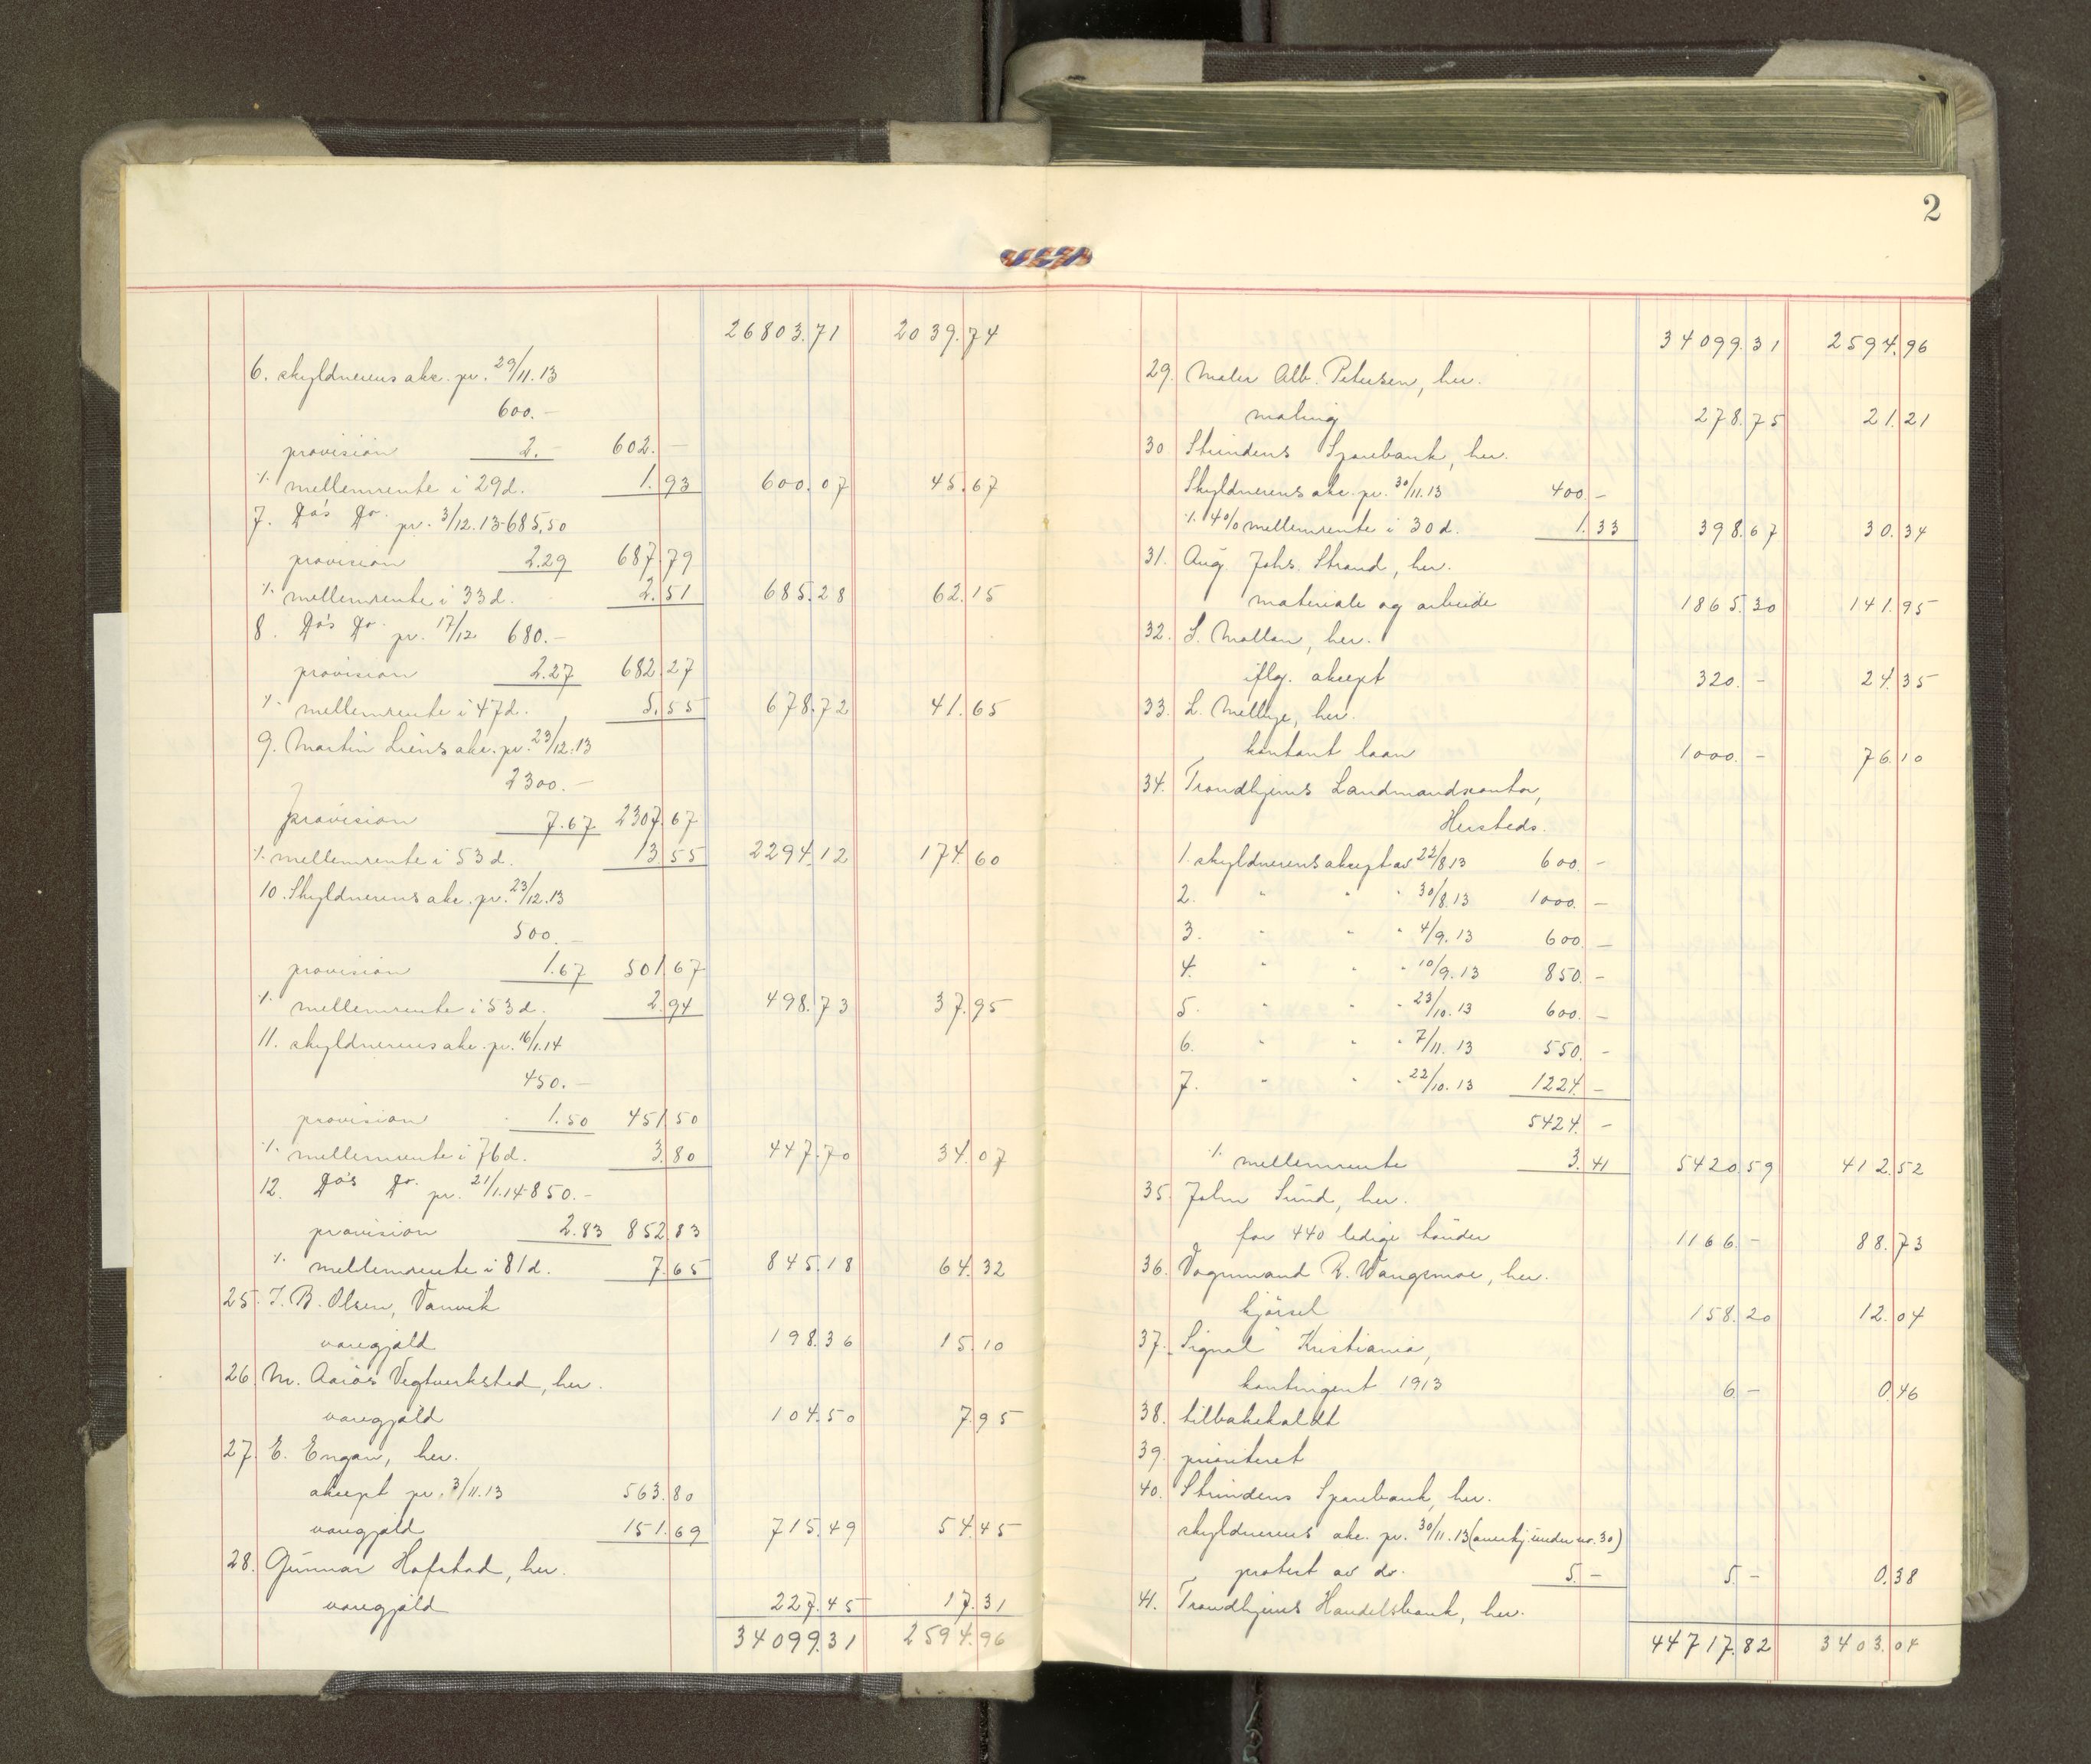 26803.71 2039.74
6. skyldnerens akc. pr. 29/11.13
600.-
provision 2.- 602.-
% mellemrente i 29d. 1.93 600.07 45.67
7. Do's Do. pr. 3/12.13 685,50
provision 2.29 687.79
% mellemrente i 33d. 2.51 685.28 62.15
8. Do's Do. pr. 17/12 680.-
provision 2.27 682.27
% mellemrente i 47d. 5.55 678.72 41.65
9. Martin Liens akc. pr. 23/12.13
2300.-
provision 7.67 2307.67
% mellemrente i 53d. 13.55 2294.12 174.60
10. Skyldnerens akc. pr. 23/12.13
500.-
provision 1.67 501.67
% mellemrente i 53d. 2.94 498.73 37.95
11. skyldnerens akc. pr. 16/1.14
450.-
provision 1.50 451.50
% mellemrente i 76d. 3.80 447.70 34.07
12. Do's Do. pr. 21/1.14 850.-
provision 2.83 852.83
% mellemrente i 81d. 7.65 845.18 64.32
25. J. B. Olsen, Vanvik
varegjæld 198.36 15.10
26. M. Aaiøs Vegtverksted, her.
varegjæld 104.50 7.95
27. E. Engan, her.
aksept pr. 3/11.13 563.80
varegjæld 151.69 715.49 54.45
28. Gunnar Hofstad, her.
varegjæld 227.45 17.31
34099.31 2594.96
2
34099.31 2594.96
29. Maler Alb. Petersen, her.
maling 278.75 21.21
30 Strindens Sparebank, her.
Skyldnerens akc. pr. 30/11.13 400.-
% 4% mellemrente i 30d. 1.33 398.67 30.34
31. Aug. Johs. Strand, her.
materiale og arbeide 1865.30 141.95
32. S. Mollan, her.
iflg. aksept 320.- 24.35
33. L. Mellbye, her.
kontant laan 1000.- 76.10
34. Trondhjems Landmandskontor,
Hersteds.
1. skyldnerens aksept av 22/8.13 600.-
2. " " " 30/8.13 1000.-
3. " " " 4/9.13 600.-
4. " " " 10/9.13 850.-
5. " " " 23/10.13 600.-
6. " " " 7/11.13 550.-
7. " " " 22/10.13 1224.-
5424.-
% mellemrente 3.41 5420.59 412.52
35. John Sund, her.
for 440 ledige tönder 1166.- 88.73
36. Vognmand R. Wangsmoe, her.
kjörsel 158.20 12.04
37. "Signal" Kristiania,
kontingent 1913 6.- 0.46
38. tilbakekaldt
39. prioritert
40. Strindens Sparebank, her.
skyldnerens akc. pr. 30/11.13 (anerkj. under nr. 30)
protest av do. 5.- 5.- 0.38
41. Trondhjems Handelsbank, her.
44717.82 3403.04